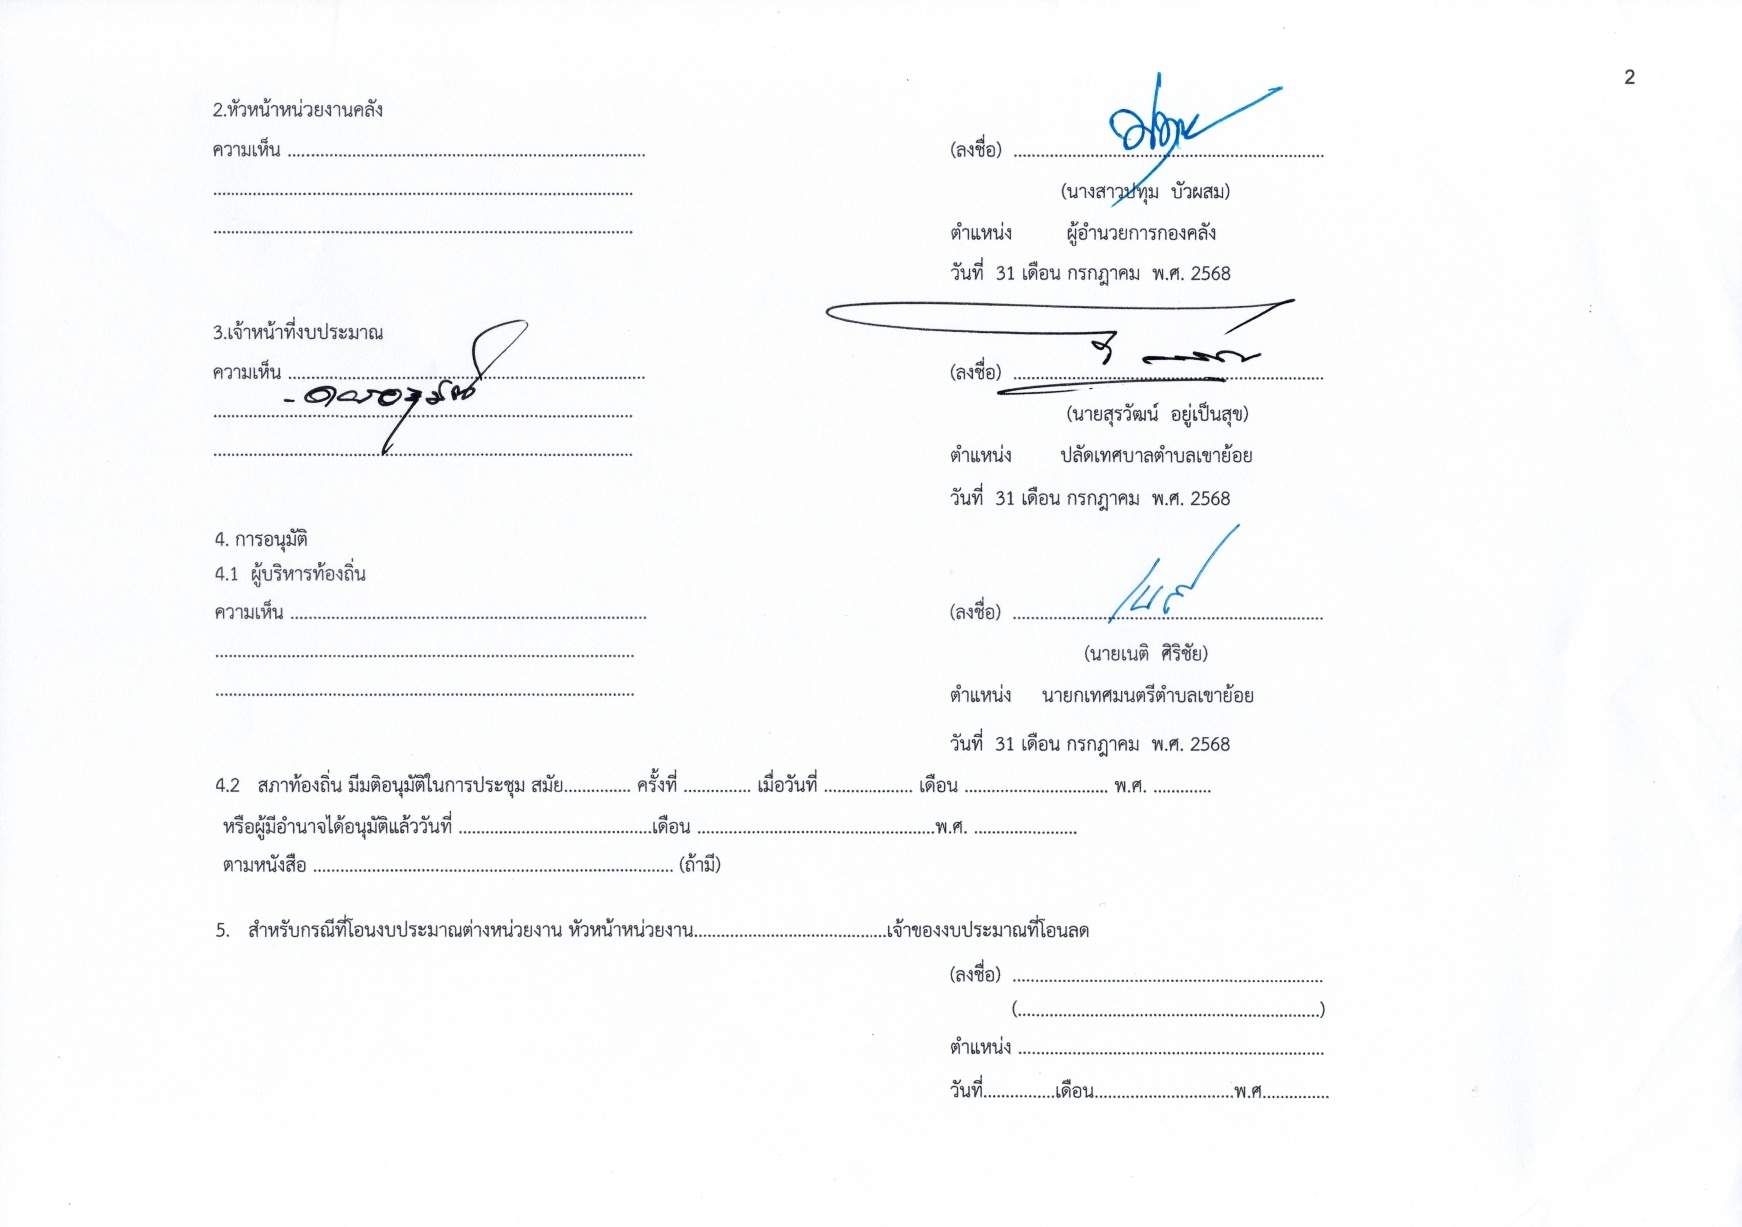 2
2.หัวหน้าหน่วยงานคลัง
ความเห็น ................................................................................
(ลงชื่อ) .....................................................................
(นางสาวปทุม บัวผสม)
ตำแหน่ง ผู้อำนวยการกองคลัง
วันที่ 31 เดือน กรกฎาคม พ.ศ. 2568
3.เจ้าหน้าที่งบประมาณ
ความเห็น ................................................................................
(ลงชื่อ) .....................................................................
(นายสุรวัฒน์ อยู่เป็นสุข)
ตำแหน่ง ปลัดเทศบาลตำบลเขาย้อย
วันที่ 31 เดือน กรกฎาคม พ.ศ. 2568
4. การอนุมัติ
4.1 ผู้บริหารท้องถิ่น
ความเห็น ................................................................................
(ลงชื่อ) .....................................................................
(นายเนติ ศิริชัย)
ตำแหน่ง นายกเทศมนตรีตำบลเขาย้อย
วันที่ 31 เดือน กรกฎาคม พ.ศ. 2568
4.2 สภาท้องถิ่น มีมติอนุมัติในการประชุม สมัย............... ครั้งที่ ............... เมื่อวันที่ .................... เดือน ................................ พ.ศ. .............
หรือผู้มีอำนาจได้อนุมัติแล้ววันที่ ...........................................เดือน .....................................................พ.ศ. .......................
ตามหนังสือ ................................................................................ (ถ้ามี)
5. สำหรับกรณีที่โอนงบประมาณต่างหน่วยงาน หัวหน้าหน่วยงาน...........................................เจ้าของงบประมาณที่โอนลด
(ลงชื่อ) .....................................................................
(...................................................................)
ตำแหน่ง ....................................................................
วันที่................เดือน...............................พ.ศ...............